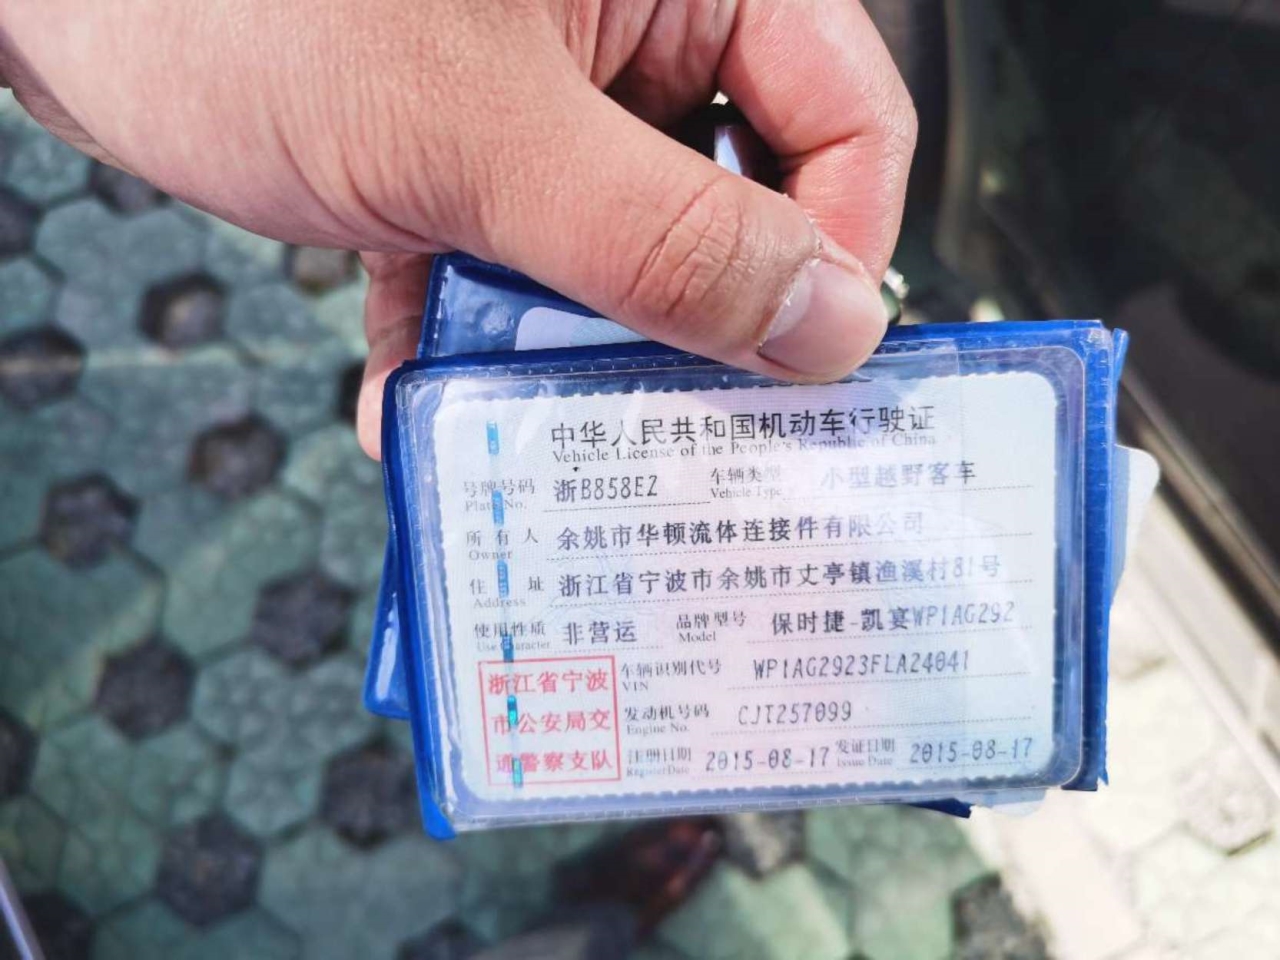 中华人民共和国机动车行驶证
Vehicle License of the People's Republic of China
号牌号码 浙B858EZ 车辆类型 小型越野客车
Plate No. Vehicle Type
所有人 余姚市华顿流体连接件有限公司
Owner
住址 浙江省宁波市余姚市丈亭镇渔溪村81号
Address
使用性质 非营运 品牌型号 保时捷-凯宴WP1AG292
Use Character Model
浙江省宁波 车辆识别代号 WP1AG2923FLA24041
VIN
市公安局交 发动机号码 CJT257099
Engine No.
通警察支队 注册日期 2015-08-17 发证日期 2015-08-17
Register Date Issue Date